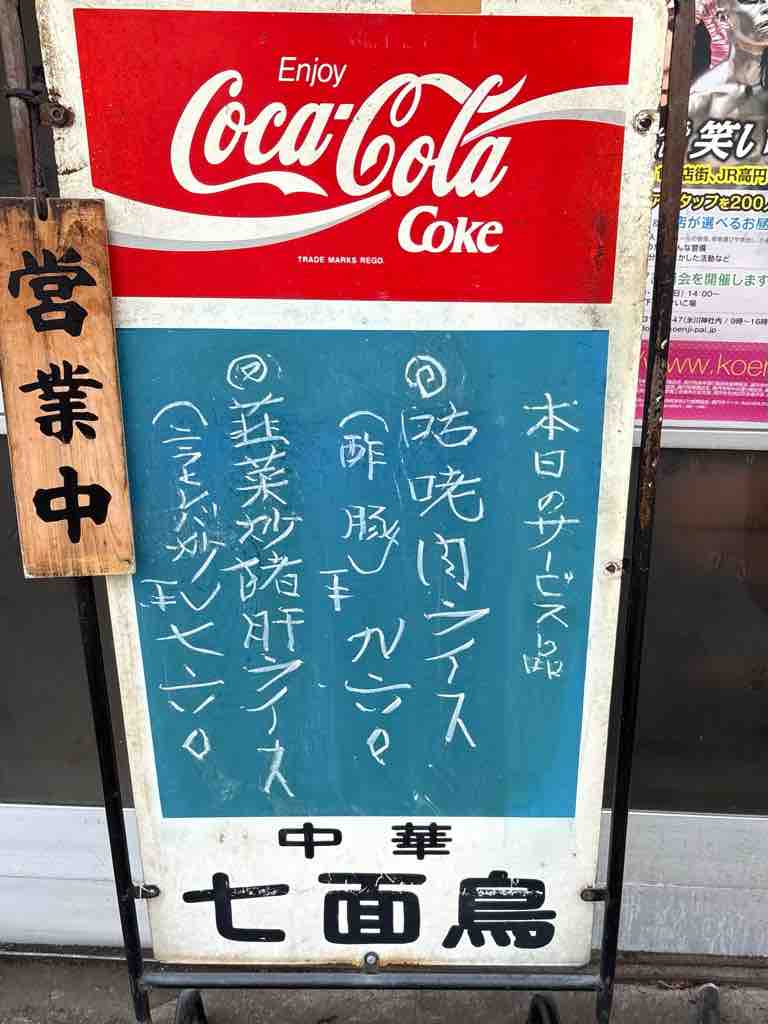 Enjoy
Coca-Cola
Coke
TRADE MARKS REGD.
営業中
本日のサービス品
咕咾肉ライス
(酢豚)
¥九六〇
韮菜炒猪肝ライス
(ニラレバ炒)
¥七六〇
中華
七面鳥
笑い
店街、JR高円
タップを200
店が選べるお昼
会を開催します
14:00~
www.koen